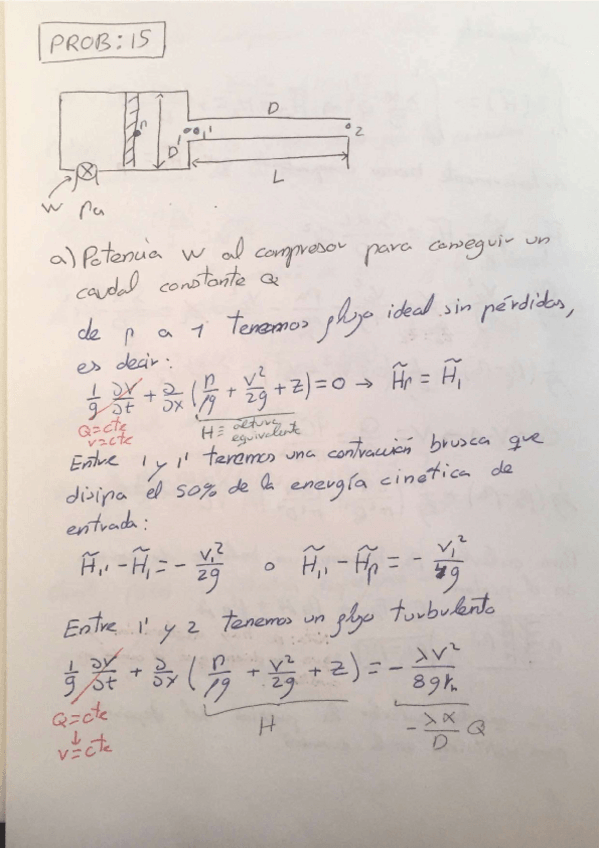 PROB: 15
D
p
D'
1
1'
2
L
W
Pa
a) Potencia W al compresor para conseguir un
caudal constante Q
de p a 1 tenemos flujo ideal sin pérdidas,
es decir:
1/g ∂V/∂t + ∂/∂x (p/ρg + v²/2g + z) = 0 → H̃p = H̃1
Q=cte
v=cte
H ≡ altura equivalente
Entre 1 y 1' tenemos una contracción brusca que
disipa el 50% de la energía cinética de
entrada:
H̃1' - H̃1 = - v1²/2g o H̃1' - H̃p = - v1²/4g
Entre 1' y 2 tenemos un flujo turbulento
1/g ∂V/∂t + ∂/∂x (p/ρg + v²/2g + z) = - λv²/8grh
Q=cte
↓
v=cte
H
- λα/D Q